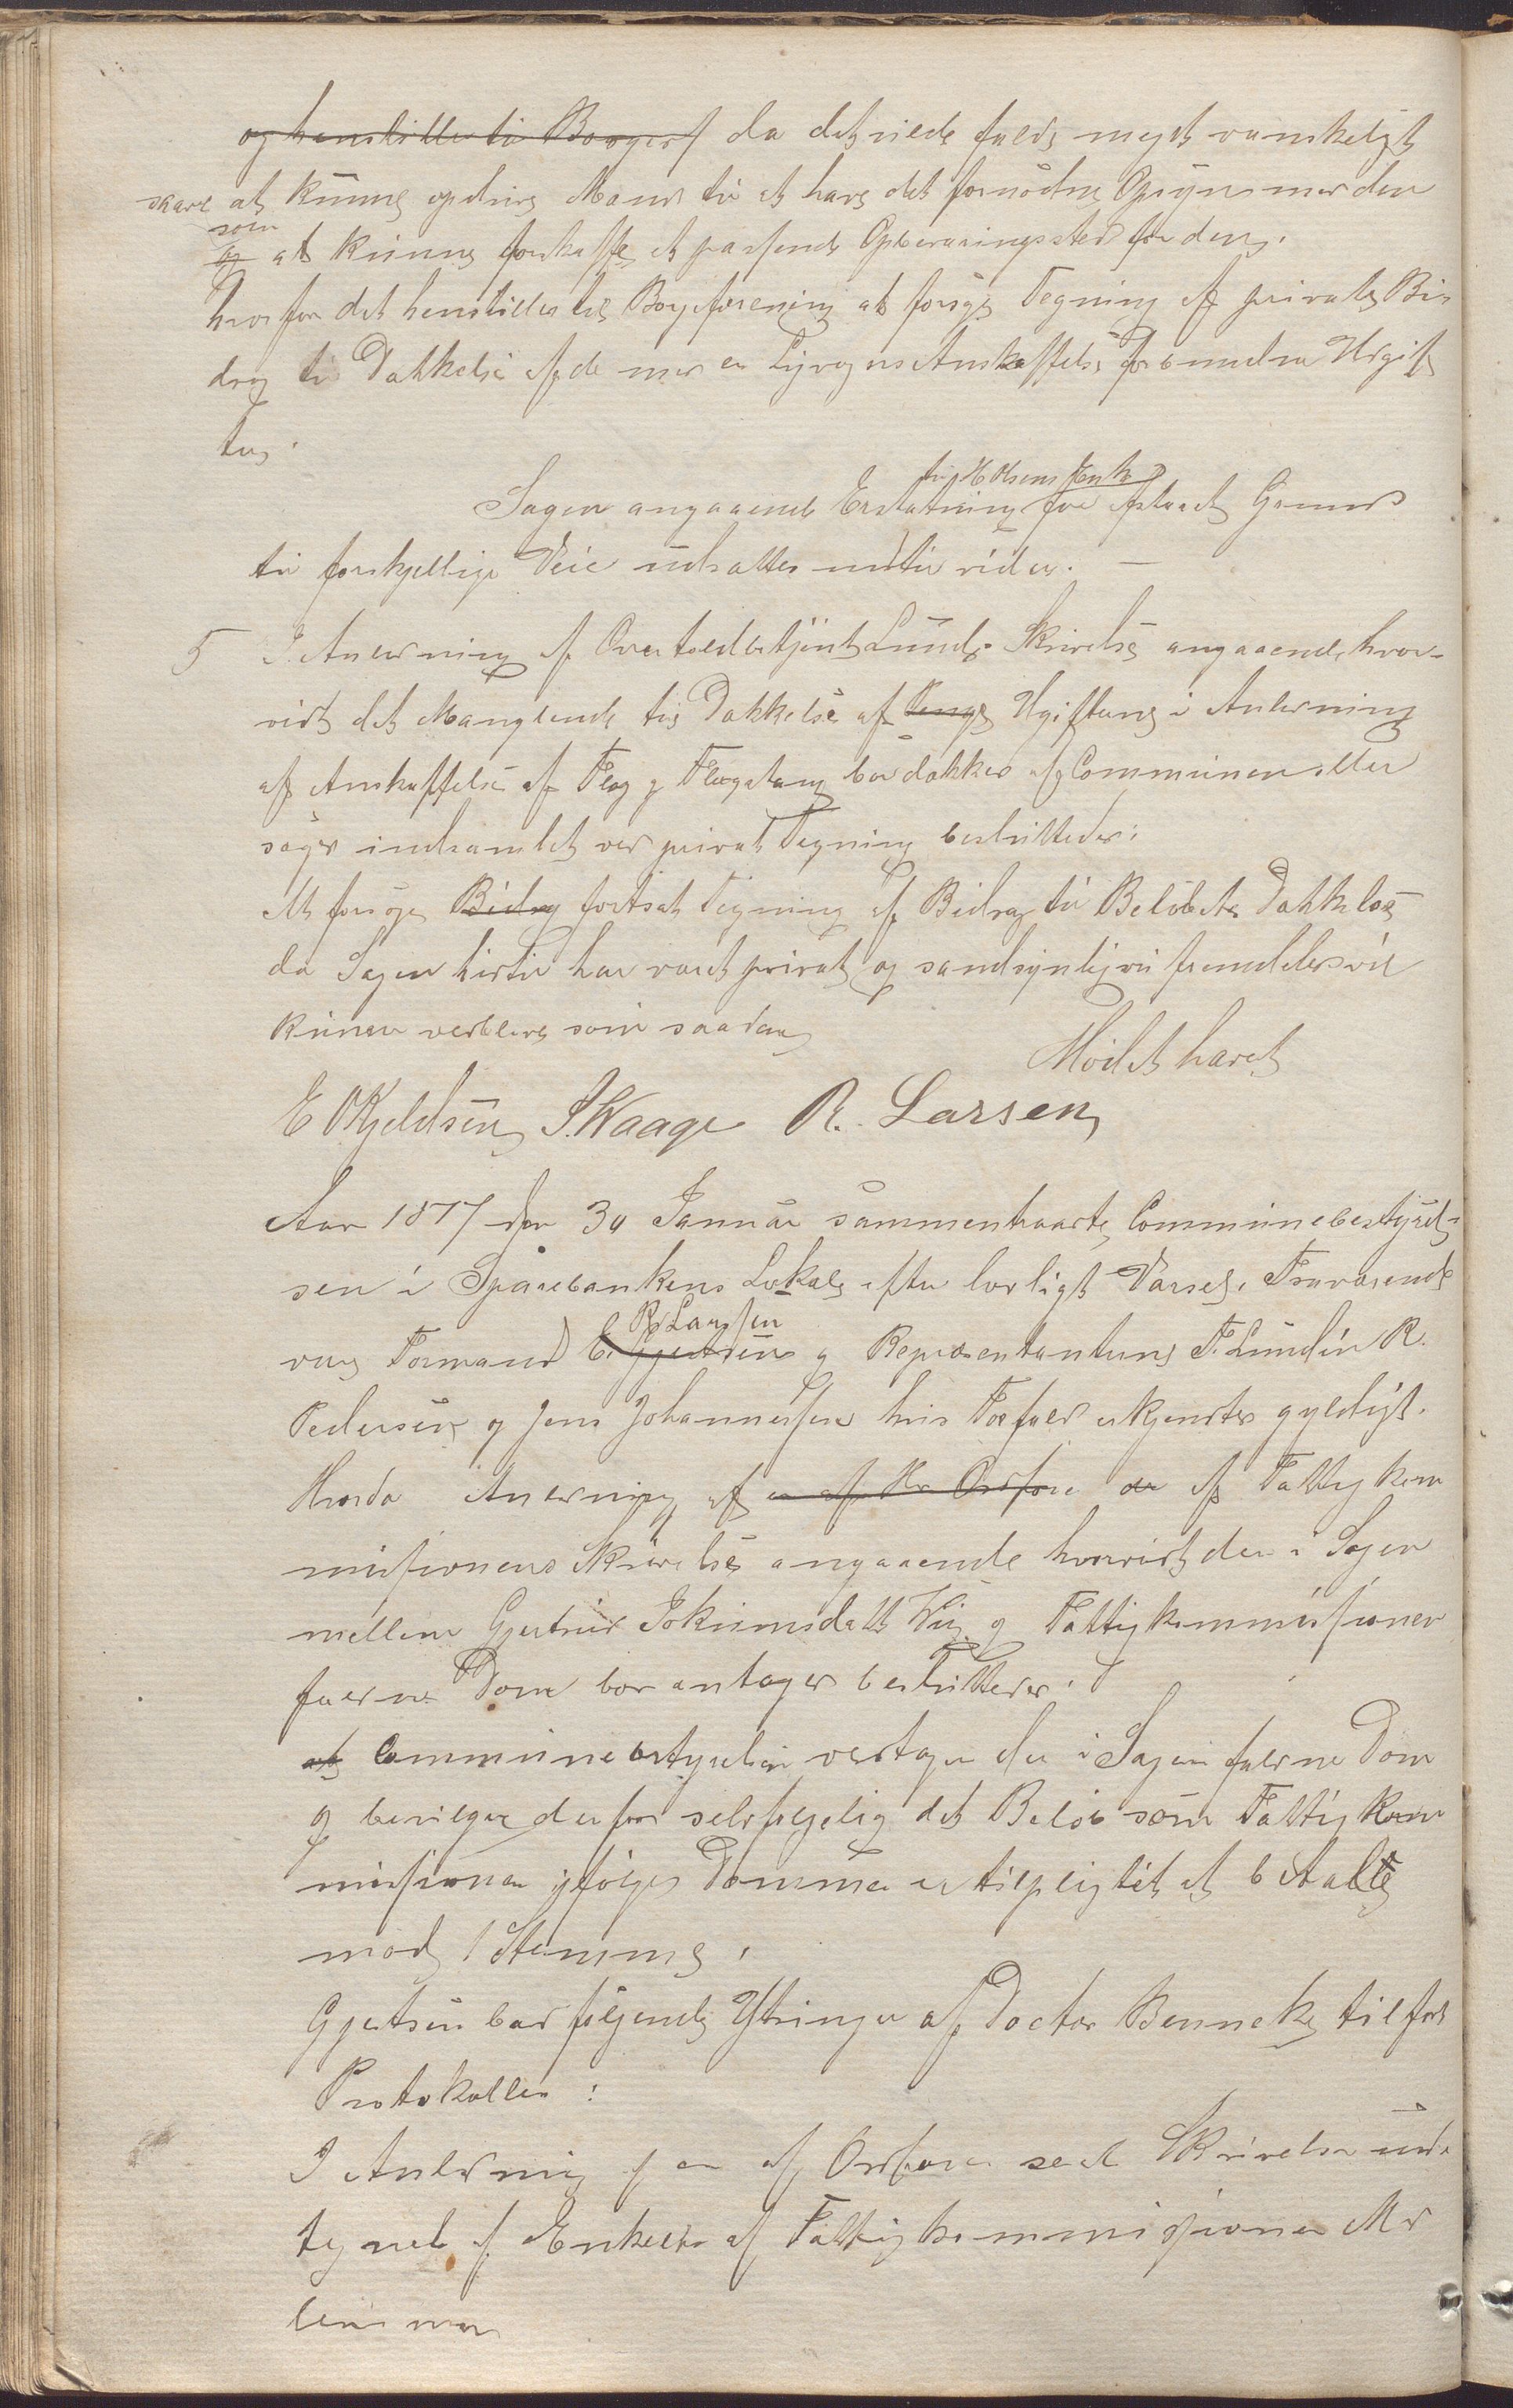 og henstille til Borgerf da det vilde falde meget vanskeligt
saavel at kunne opdrive Mand til at have det fornødne Opsyn med den
som og at kunne forskaffe et passende Opbevaringssted for den,
hvorfor det henstilles til Borgerforening at forsøge Tegning af private Bi-
drag til Dækkelse af de med en Ligvogns Anskaffelse forbundne Udgif
ter.
til Olsens Enke
Sagen angaaende Erstatning for afstaaet Grund
til forskjellige Veie udsattes indtil videre. —
5 I Anledning af Overtoldbetjent Lunds Skrivelse angaaende, hvor-
vidt det Manglende til Dækkelse af Penge Udgifterne i Anledning
af Anskaffelse af Flag og Flagstang bør dækkes af Communen eller
søges indsamlet ved privat Tegning besluttedes:
At forsøge Bidrag fortsat Tegning af Bidrag til Beløbets Dækkelse
da Sagen hidtil har været privat og sandsynligvis fremdeles vil
kunne vedblive som saadan
Mødet hævet
E Kjeldsen J. Waage R. Larsen
Aar 1877 den 30 Januar sammentraadte Communebestyrel-
sen i Sparebankens Lokale efter lovligt Varsel. Fraværende
R Larssen
var Formand E. Gjertsen og Repræsentanterne F. Lundin R.
Pedersen og Jens Johannessen hvis Forfald erkjendtes gyldigt.
Hvorda Anledning af en af Hr Ordfører en af Fattigkom
missionens Skrivelse angaaende hvorvidt den i Sagen
mellem Gjertrud Jokumsdatt Vig og Fattigkommissionen
faldne Dom bør antages besluttedes:
at Communebestyrelsen vedtager den i Sagen faldne Dom
og bevilger derfor selvfølgelig det Beløb som Fattigkom
missionen ifølge Dommen er tilpligtet at betale
mod 1 Stemme.
Gjertsen bad følgende Ytringer af Doctor Bennecke tilført
Protokollen:
I Anledning af en af Ordføren sendt Skrivelse und-
tegnet af Enkelte af Fattigkommissionen Med
lemmer